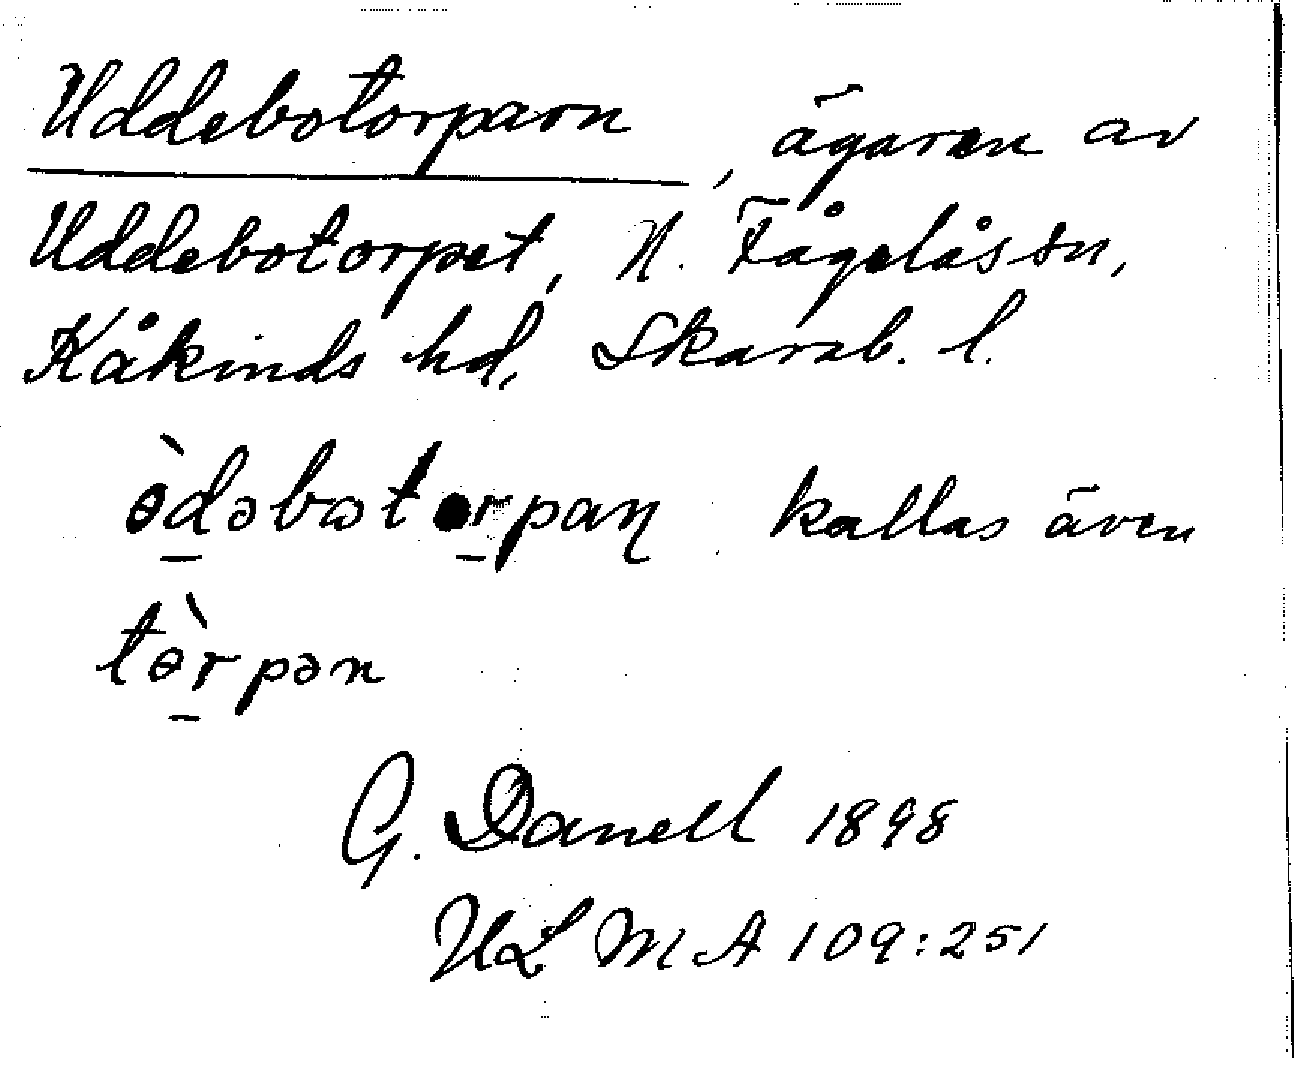 Uddebotorparn, ägaren av
Uddebotorpet, N. Fågelås sn,
Kåkinds hd, Skarab. l.
ɵ̀d̲əbɷtɵr̲paɳ kallas även
tɵ̀r̲pən
G. Danell 1898
ULMA 109:251